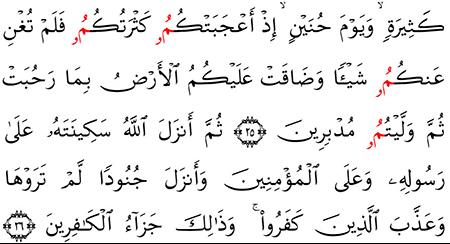 كَثِيرَةٍۙ وَيَوْمَ حُنَيْنٍۙ إِذْ أَعْجَبَتْكُمُۥ كَثْرَتُكُمُۥ فَلَمْ تُغْنِ
عَنكُمُۥ شَيْـًٔا وَضَاقَتْ عَلَيْكُمُ ٱلْأَرْضُ بِمَا رَحُبَتْ
ثُمَّ وَلَّيْتُمُۥ مُدْبِرِينَ ٢٥ ثُمَّ أَنزَلَ ٱللَّهُ سَكِينَتَهُۥ عَلَىٰ
رَسُولِهِۦ وَعَلَى ٱلْمُؤْمِنِينَ وَأَنزَلَ جُنُودًا لَّمْ تَرَوْهَا
وَعَذَّبَ ٱلَّذِينَ كَفَرُوا۟ۚ وَذَٰلِكَ جَزَآءُ ٱلْكَٰفِرِينَ ٢٦